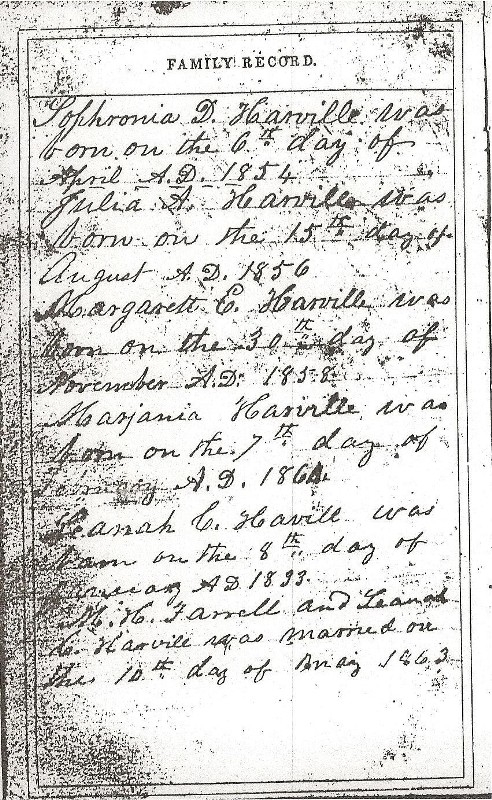 FAMILY RECORD.
Sophronia D. Harville was
born on the 6th day of
April A.D. 1854
Julia A. Harville was
born on the 15th day of
August A.D. 1856
Margarett E. Harville was
born on the 30th day of
November A.D. 1858
Marjania Harville was
born on the 7th day of
A.D.
Leanah C. Havill was
born on the 8th day of
AD 1833.
M. H. Farrell and Leanah
C. Harvill was married on
the 10th day of May 1863